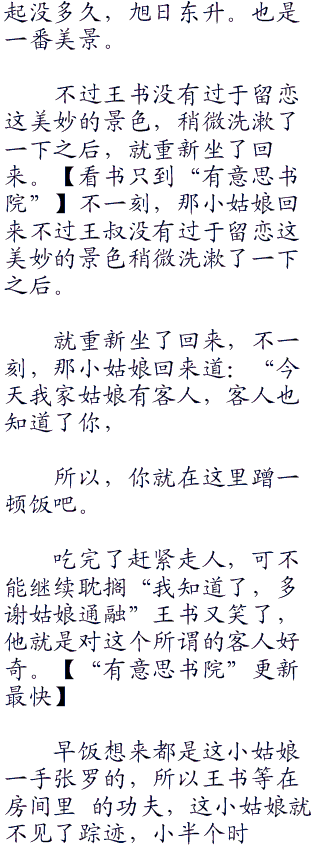 起没多久，旭日东升。也是
一番美景。
不过王书没有过于留恋
这美妙的景色，稍微洗漱了
一下之后，就重新坐了回
来。【看书只到“有意思书
院”】不一刻，那小姑娘回
来不过王叔没有过于留恋这
美妙的景色稍微洗漱了一下
之后。
就重新坐了回来，不一
刻，那小姑娘回来道：“今
天我家姑娘有客人，客人也
知道了你，
所以，你就在这里蹭一
顿饭吧。
吃完了赶紧走人，可不
能继续耽搁“我知道了，多
谢姑娘通融”王书又笑了，
他就是对这个所谓的客人好
奇。【“有意思书院”更新
最快】
早饭想来都是这小姑娘
一手张罗的，所以王书等在
房间里 的功夫，这小姑娘就
不见了踪迹，小半个时